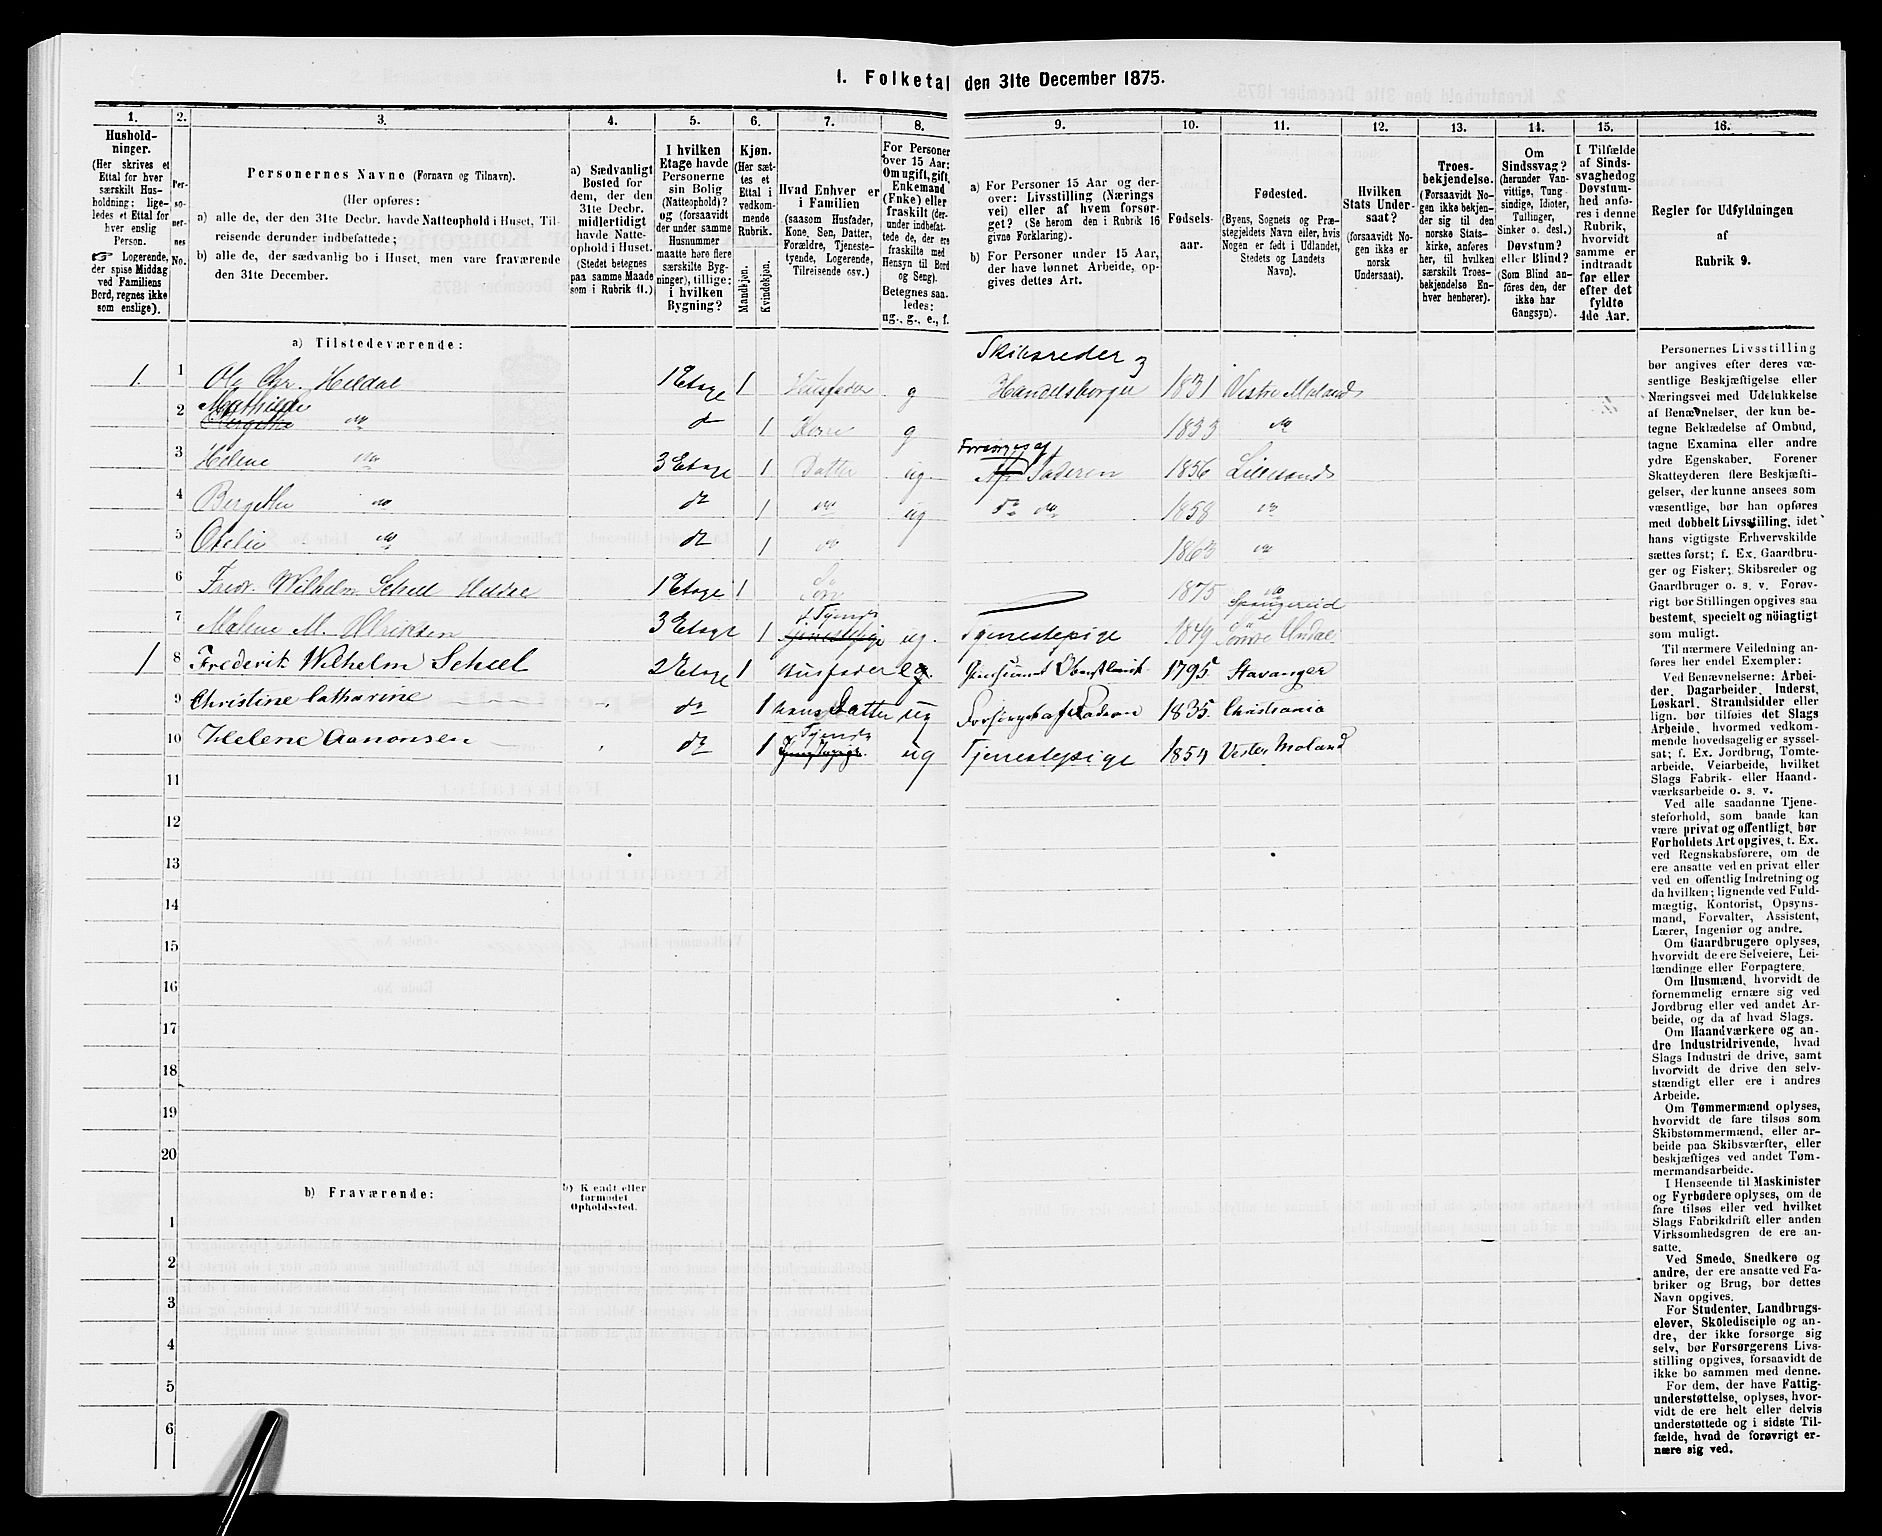 1. Folketal den 31te December 1875.
1.
Hushold-
ninger.
(Her skrives et
Ettal for hver
særskilt Hus-
holdning; lige-
ledes et Ettal for
hver enslig
Person.
☞ Logerende,
der spise Middag
ved Familiens
Bord, regnes ikke
som enslige).
2.
Per-
so-
ner-
nes
No.
3.
Personernes Navne (Fornavn og Tilnavn).
(Her opføres:
a) alle de, der den 31te Decbr. havde Natteophold i Huset, Til-
reisende derunder indbefattede;
b) alle de, der sædvanlig bo i Huset, men vare fraværende
den 31te December.
4.
a) Sædvanligt
Bosted for
dem, der den
31te Decbr.
midlertidigt
havde Natte-
ophold i Huset.
(Stedet betegnes
paa samme Maade
som i Rubrik 11.)
5.
I hvilken
Etage havde
Personerne
sin Bolig
(Natteophold)?
og (forsaavidt
der under samme
Husnummer
maatte høre flere
særskilte Byg-
ninger), tillige:
i hvilken
Bygning?
6.
Kjøn.
(Her sæt-
tes et
Ettal i
vedkom-
mende
Rubrik.
Mandkjøn.
Kvindekjøn.
7.
Hvad Enhver er
i Familien
(saasom Husfader,
Kone, Søn, Datter,
Forældre, Tjeneste-
tyende, Logerende,
Tilreisende osv.)
8.
For Personer
over 15 Aar:
Om ugift, gift,
Enkemand
(Enke) eller
fraskilt (der-
under indbefat-
tede de, der ere
fraskilte med
Hensyn til Bord
og Seng).
Betegnes saa-
ledes:
ug., g., e., f.
9.
a) For Personer 15 Aar og der-
over: Livsstilling (Nærings
vei) eller af hvem forsør-
get? (Se herom den i Rubrik 16
givne Forklaring).
b) For Personer under 15 Aar,
der have lønnet Arbeide, op-
gives dettes Art.
10.
Fødsels-
aar.
11.
Fødested.
(Byens, Sognets og Præ-
stegjeldets Navn eller, hvis
Nogen er født i Udlandet,
Stedets og Landets
Navn).
12.
Hvilken
Stats Under-
saat?
(forsaavidt No-
gen ikke er
norsk
Undersaat).
13.
Troes-
bekjendelse.
(Forsaavidt No-
gen ikke bekjen-
der sig til den
norske Stats-
kirke, anføres
her, til hvilken
særskilt Troes-
bekjendelse En-
hver henhører).
14.
Om
Sindssvag?
(herunder Van-
vittige, Tung-
sindige, Idioter,
Tullinger,
Sinker o. desl.)
Døvstum?
eller Blind?
(Som Blind an-
føres den, der
ikke har
Gangsyn).
15.
I Tilfælde
af Sinds-
svaghed og
Døvstum-
hed anfø-
res i denne
Rubrik,
hvorvidt
samme er
indtraadt
før eller
efter det
fyldte
4de Aar.
16.
Regler for Udfyldningen
af
Rubrik 9.
a) Tilstedeværende:
Skibsreder og
1. 1 Ole Chr. Heldal 1 Etage 1 Husfader g Handelsborger 1831 Vestre Moland
Mathilde
2 Bergethe do do 1 Kone g 1833 do
Forsørges af
3 Helene do 3 Etage 1 Datter ug. Af Faderen 1856 Lillesand
4 Bergethe do do 1 do ug do do 1858 do
5 Otelie do do 1 do 1863 do
6 Fredr. Wilhelm Scheel Heldal 1 Etage 1 Søn 1875 do
Tjende Spangereid
7 Malene M. Ulriksen 3 Etage 1 Tjenestepige ug. Tjenestepige 1849 Søndre Undal
1 8 Frederik Wilhelm Scheel 2 Etage 1 Husfader e 1795. Stavanger
9 Christine Catharine do 1 hans Datter ug Forsørges af Faderen 1835. Christiania
Tjende
10 Helene Aanonsen do 1 Tjenestepige ug Tjenestepige 1854 Vestre Moland
11
12
13
14
15
16
17
18
19
20
b) Fraværende:
b) Kjendt eller
formodet
Opholdssted.
1
2
3
4
5
6
Personernes Livsstilling
bør angives efter deres væ-
sentlige Beskjæftigelse eller
Næringsvei med Udelukkelse
af Benævnelser, der kun be-
tegne Beklædelse af Ombud,
tagne Examina eller andre
ydre Egenskaber. Forener
Skatteyderen flere Beskjæfti-
gelser, der kunne ansees som
væsentlige, bør han opføres
med dobbelt Livsstilling, idet
hans vigtigste Erhvervskilde
sættes først; f. Ex. Gaardbru-
ger og Fisker; Skibsreder og
Gaardbruger o. s. v. Forøv-
rigt bør Stillingen opgives saa
bestemt, specielt og nöiagtigt
som muligt.
Til nærmere Veiledning an-
føres her endel Exempler:
Ved Benævnelserne: Arbei-
der, Dagarbeider, Inderst,
Løskarl, Strandsidder eller
lign. bør tilføies det Slags
Arbeide, hvormed vedkom-
mende hovedsagelig er syssel-
sat; f. Ex. Jordbrug, Tomte-
arbeide, Veiarbeide, hvilket
Slags Fabrik- eller Haand-
værksarbeide o. s. v.
Ved alle saadanne Tjene-
steforhold, som baade kan
være privat og offentligt, bør
Forholdets Art opgives, t. Ex.
ved Regnskabsførere, om de
ere ansatte ved en privat eller
ved en offentlig Indretning og
da hvilken; lignende ved Fuld-
mægtig, Kontorist, Opsyns-
mand, Forvalter, Assistent,
Lærer, Ingeniør og andre.
Om Gaardbrugere oplyses,
hvorvidt de ere Selveiere, Lei-
lændinge eller Forpagtere.
Om Husmænd, hvorvidt de
fornemmelig ernære sig ved
Jordbrug eller ved andet Ar-
beide, og da af hvad Slags.
Om Haandværkere og an-
dre Industridrivende, hvad
Slags Industri de drive, samt
hvorvidt de drive den selv-
stændigt eller ere i andres
Arbeide.
Om Tømmermænd oplyses,
hvorvidt de fare tilsøs som
Skibstømmermænd, eller ar-
beide paa Skibsværfter, eller
beskjæftiges ved andet Tøm-
mermandsarbeide.
I Henseende til Maskinister
og Fyrbødere oplyses, om de
fare tilsøs eller ved hvilket
Slags Fabrikdrift eller anden
Virksomhedsgren de ere an-
satte.
Ved Smede, Snedkere og
andre, der ere ansatte ved Fa-
briker og Brug, bør dettes
Navn opgives.
For Studenter, Landbrugs-
elever, Skoledisciple og an-
dre, der ikke forsørge sig
selv, bør Forsørgerens Livs-
stilling opgives, forsaavidt de
ikke bo sammen med denne.
For dem, der have Fattig-
understøttelse, oplyses, hvor-
vidt de ere helt eller delvis
understøttede og i sidste Til-
fælde, hvad de forøvrigt er-
nære sig ved.